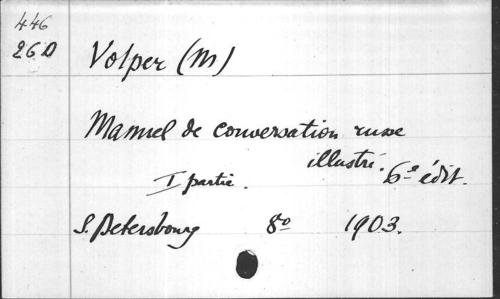 446
26 D
Volper (M)
Manuel de conversation russe
illustré. 6e édit.
I partie.
S. Petersbourg 8o 1903.